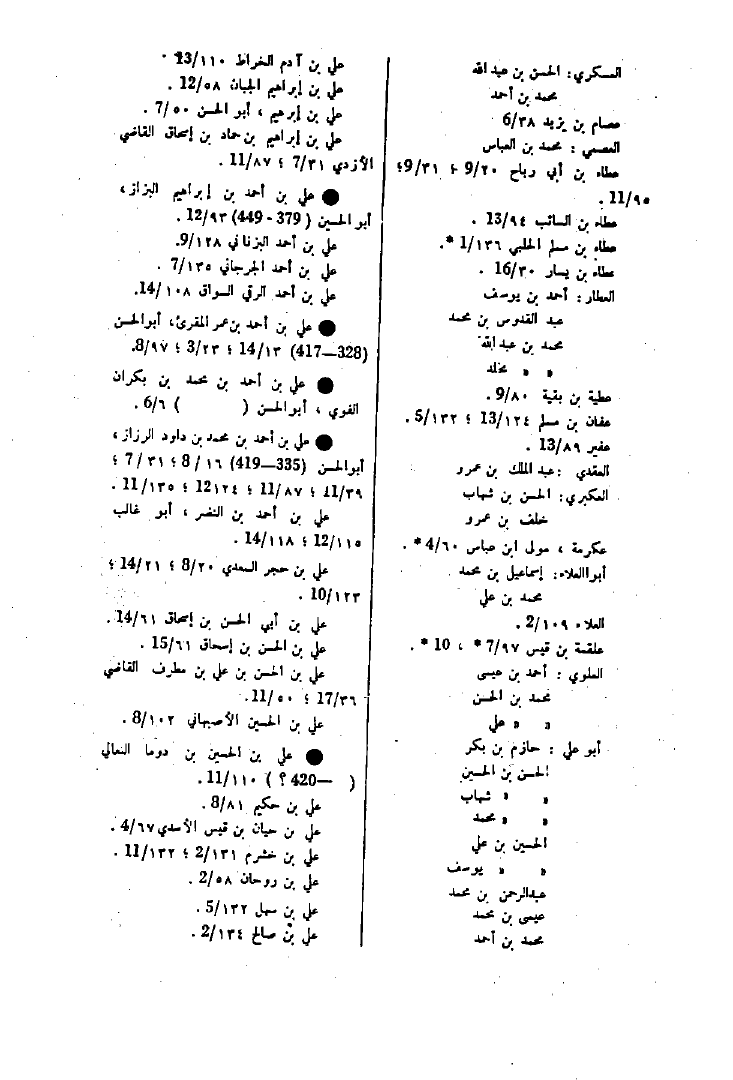 العسكري: الحسن بن عبد الله
محمد بن أحمد
عصام بن يزيد ٣٨/6
العصمي : محمد بن العباس
عطاء بن أبي رباح ٢٠/9 ؛ ٣١/9؛
٩٥/11 .
عطاء بن السائب ٩٤/13 .
عطاء بن مسلم الحلبي ١٣٦/1 *.
عطاء بن يسار ٣٠/16 .
العطار: أحمد بن يوسف
عبد القدوس بن محمد
محمد بن عبد الله
» » مخلد
عطية بن بقية ٨٠/9.
عفان بن مسلم ١٢٤/13 ؛ ١٣٢/5 .
عفير ٨٩/13 .
العقدي : عبد الملك بن عمرو
العكبري: الحسن بن شهاب
خلف بن عمرو
عكرمة ، مولى ابن عباس ٦٠/4 * .
أبو العلاء: إسماعيل بن محمد
محمد بن علي
العلاء ١٠٩/2 .
علقمة بن قيس ٩٧/7 * ، 10 * .
العلوي : أحمد بن عيسى
محمد بن الحسن
» » علي
أبو علي : حازم بن بكر
الحسن بن الحسين
» » شهاب
» » محمد
الحسين بن علي
» » يوسف
عبدالرحمن بن محمد
عيسى بن محمد
محمد بن أحمد
علي بن آدم الخراط ١١٠/13 .
علي بن إبراهيم الجبان ٥٨/12 .
علي بن إبرهيم ، أبو الحسن ٥٠/7 .
علي بن إبراهيم بن حماد بن إسحاق القاضي
الأزدي ٣١/7 ؛ ٨٧/11 .
● علي بن أحمد بن إبراهيم البزاز،
أبو الحسين ( 379 - 449) ٩٣/12 .
علي بن أحمد البزناني ١٢٨/9.
علي بن أحمد الجرجاني ١٣٥/7 .
علي بن أحمد الرقي السواق ١٠٨/14.
● علي بن أحمد بن عمر المقرئ، أبوالحسن
(328—417) ١٣/14 ؛ ٢٣/3 ؛ ٩٧/8.
● علي بن أحمد بن محمد بن بكران
الفوي ، أبو الحسن ( ) ٦/6 .
● علي بن أحمد بن محمد بن داود الرزاز ،
أبوالحسن (335—419) ١٦/8 ؛ ٣١/7 ؛
٣٩/11 ؛ ٨٧/11 ؛ ١٢٤/12 ؛ ١٣٥/11 .
علي بن أحمد بن النضر ، أبو غالب
١١٥/12 ؛ ١١٨/14 .
علي بن حجر السعدي ٢٠/8 ؛ ٢١/14 ؛
١٢٣/10 .
علي بن أبي الحسن بن إسحاق ٦١/14.
علي بن الحسن بن إسحاق ٦١/15 .
علي بن الحسن بن علي بن مطرف القاضي
٣٦/17 ؛ ٥٠/11 .
علي بن الحسين الأصبهاني ١٠٢/8 .
● علي بن الحسين بن دوما النعالي
( —420 ؟ ) ١١٠/11 .
علي بن حكيم ٨١/8 .
علي بن حيان بن قيس الأسدي ٦٧/4 .
علي بن خشرم ١٣١/2 ؛ ١٣٢/11 .
علي بن روحان ٥٨/2 .
علي بن سهل ١٣٢/5 .
علي بن صالح ١٣٤/2 .